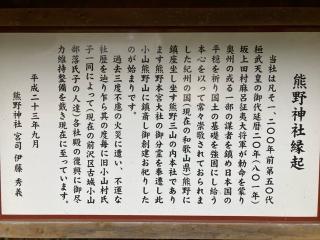 熊野神社縁起
当社は凡そ一、二〇〇年前第五〇代
桓武天皇の御代延暦二〇年(八〇一年)
坂上田村麻呂征夷大将軍が勅命を蒙り
奥州の或る一部の謀者を鎮め日本国の
平穏を祈り国土の基礎を強固にし給う
本心を以って常々崇敬されておられま
した紀州の国(現在の和歌山県)熊野に
鎮座し坐す熊野三山の内本社であり
ます熊野本宮大社の御分霊を奉遷し此
小山熊野山に鎮斎し御創建お祀りした
のが始まりです。
過去三度不慮の火災に遭い、不運な
社歴を辿り乍ら其の度毎に旧小山村氏
子一同によって(現在の前沢区古城小山
部落氏子の人達)各社殿の復興に御尽
力維持整備を戴き現在に至っています。
平成二十三年九月
熊野神社 宮司 伊藤 秀義